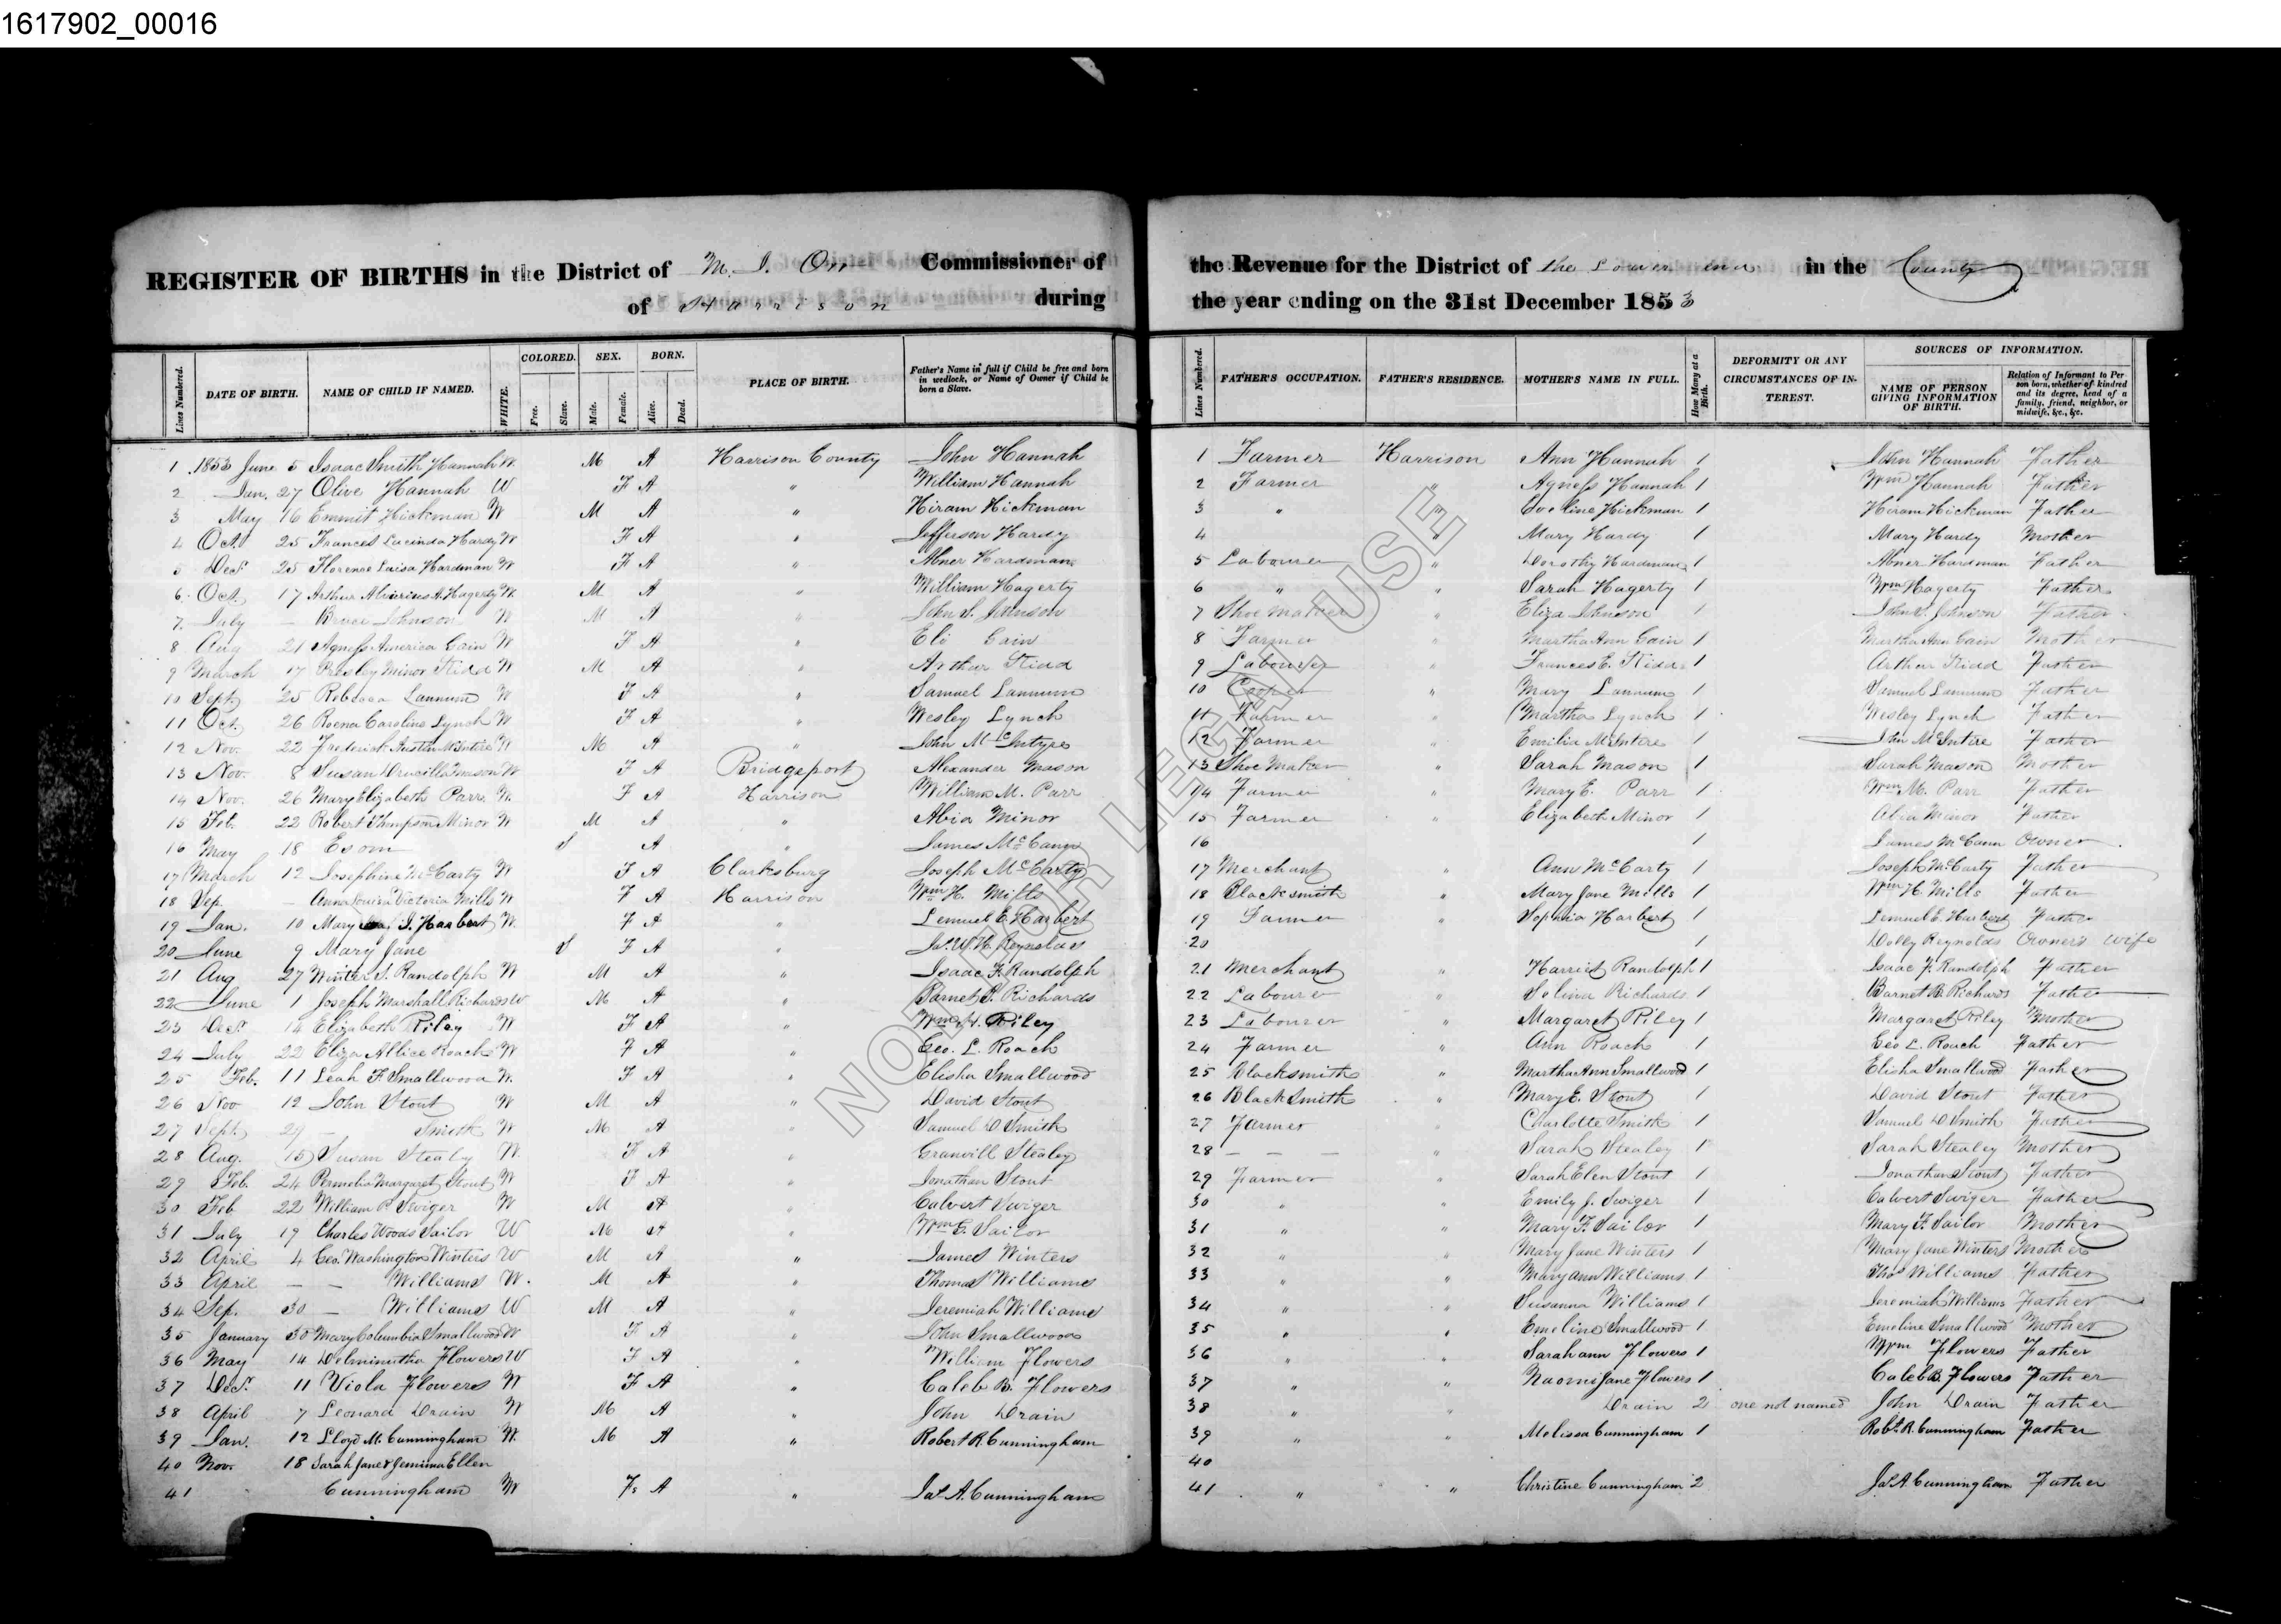 1617902_00016
REGISTER OF BIRTHS in the District of M. I. Commissioner of
of Harrison during
the Revenue for the District of the Lower end in the County
the year ending on the 31st December 1853
Lines Numbered. DATE OF BIRTH. NAME OF CHILD IF NAMED. WHITE. COLORED. Free. Slave. SEX. Male. Female. BORN. Alive. Dead. PLACE OF BIRTH. Father's Name in full if Child be free and born in wedlock, or Name of Owner if Child be born a Slave.
Lines Numbered. FATHER'S OCCUPATION. FATHER'S RESIDENCE. MOTHER'S NAME IN FULL. How Many at a Birth. DEFORMITY OR ANY CIRCUMSTANCES OF INTEREST. SOURCES OF INFORMATION. NAME OF PERSON GIVING INFORMATION OF BIRTH. Relation of Informant to Person born, whether of kindred and its degree, head of a family, friend, neighbor, or midwife, &c., &c.
1 1853 June 5 Isaac Smith Hannah W. M A Harrison County John Hannah 1 Farmer Harrison Ann Hannah 1 John Hannah Father
2 Jan. 27 Olive Hannah W F A " William Hannah 2 Farmer " Agness Hannah 1 Wm Hannah Father
3 May 16 Emmit Hickman W M A " Hiram Hickman 3 " " Hickman 1 Hiram Hickman Father
4 Oct. 25 Frances Lucinda Hardy W F A " Jefferson Hardy 4 " Mary Hardy 1 Mary Hardy Mother
5 Dec. 25 Florence Luisa Hardman W F A " Abner Hardman 5 Labourer " Dorothy Hardman 1 Abner Hardman Father
6 Oct. 17 Arthur A. Hagerty W. M A " William Hagerty 6 " " Sarah Hagerty 1 Wm Hagerty Father
7 July — Bruce Johnson W M A " John S. Johnson 7 Shoe maker " Eliza Johnson 1 John S. Johnson Father
8 Aug 21 Agness America Gain W F A " Eli Gain 8 Farmer " Martha Ann Gain 1 Martha Ann Gain Mother
9 March 17 Presley Minor Kidd W M A " Arthur Kidd 9 Labourer " Frances E. Kidd 1 Arthur Kidd Father
10 Sept. 25 Rebecca Lannum W F A " Samuel Lannum 10 Cooper " Mary Lannum 1 Samuel Lannum Father
11 Oct. 26 Roena Caroline Lynch W F A " Wesley Lynch 11 Farmer " Martha Lynch 1 Wesley Lynch Father
12 Nov. 22 Frederick Austin McIntire W M A " John McIntyre 12 Farmer " Emilia McIntire 1 John McIntire Father
13 Nov. 8 Susan Drucilla Mason W F A Bridgeport Alexander Mason 13 Shoe Maker " Sarah Mason 1 Sarah Mason Mother
14 Nov. 26 Mary Elizabeth Parr W. F A Harrison William M. Parr 14 Farmer " Mary E. Parr 1 Wm M. Parr Father
15 Feb. 22 Robert Thompson Minor W M A " Abia Minor 15 Farmer " Elizabeth Minor 1 Abia Minor Father
16 May 18 Esom S A " James McCann 16 1 James McCann Owner
17 March 12 Josephine McCarty W F A Clarksburg Joseph McCarty 17 Merchant " Ann McCarty 1 Joseph McCarty Father
18 Sep. — Anna Louisa Victoria Mills W F A Harrison Wm H. Mills 18 Blacksmith " Mary Jane Mills 1 Wm H. Mills Father
19 Jan. 10 Mary J. Harbert W. F A " Lemuel E. Harbert 19 Farmer " Sophia Harbert 1 Lemuel E. Harbert Father
20 June 9 Mary Jane S F A " Jas. W. H. Reynolds 20 1 Dolly Reynolds Owner's wife
21 Aug 27 Winter S. Randolph W M A " Isaac F. Randolph 21 Merchant " Harriet Randolph 1 Isaac F. Randolph Father
22 June 1 Joseph Marshall Richards W M A " Barnet B. Richards 22 Labourer " Selina Richards 1 Barnet B. Richards Father
23 Dec. 14 Elizabeth Riley W F A " Wm H. Riley 23 Labourer " Margaret Riley 1 Margaret Riley Mother
24 July 22 Eliza Allice Roach W F A " Geo. L. Roach 24 Farmer " Ann Roach 1 Geo L. Roach Father
25 Feb. 11 Leah F Smallwood W. F A " Elisha Smallwood 25 Blacksmith " Martha Ann Smallwood 1 Elisha Smallwood Father
26 Nov 12 John Stout W M A " David Stout 26 Black Smith " Mary E. Stout 1 David Stout Father
27 Sept. 29 — Smith W M A " Samuel D Smith 27 Farmer " Charlotte Smith 1 Samuel D. Smith Father
28 Aug. 15 Susan Stealey W. F A " Granvill Stealey 28 — — — " Sarah Stealey 1 Sarah Stealey Mother
29 Feb. 24 Permelia Margaret Stout W F A " Jonathan Stout 29 Farmer " Sarah Elen Stout 1 Jonathan Stout Father
30 Feb 22 William P. Swiger W M A " Calvert Swiger 30 " " Emily J. Swiger 1 Calvert Swiger Father
31 July 19 Charles Woods Sailor W M A " Wm E. Sailor 31 " " Mary F. Sailor 1 Mary F. Sailor Mother
32 April 4 Geo. Washington Winters W M A " James Winters 32 " " Mary Jane Winters 1 Mary Jane Winters Mother
33 April — — Williams W. M A " Thomas Williams 33 " " Mary Ann Williams 1 Thos Williams Father
34 Sep. 30 — Williams W M A " Jeremiah Williams 34 " " Susanna Williams 1 Jeremiah Williams Father
35 January 30 Mary Columbia Smallwood W F A " John Smallwood 35 " " Emeline Smallwood 1 Emeline Smallwood Mother
36 May 14 Delminutha Flowers W F A " William Flowers 36 " " Sarah ann Flowers 1 Wm Flowers Father
37 Dec. 11 Viola Flowers W F A " Caleb B. Flowers 37 " " Naomi Jane Flowers 1 Caleb B. Flowers Father
38 April 7 Leonard Drain W M A John Drain 38 " " Drain 2 one not named John Drain Father
39 Jan. 12 Lloyd M. Cunningham W. M A " Robert R. Cunningham 39 " " Melissa Cunningham 1 Robt. R. Cunningham Father
40 Nov. 18 Sarah Jane & Jemima Ellen 40
41 Cunningham W Fs A " Jas A. Cunningham 41 " " Christine Cunningham 2 Jas A. Cunningham Father
NOT FOR LEGAL USE